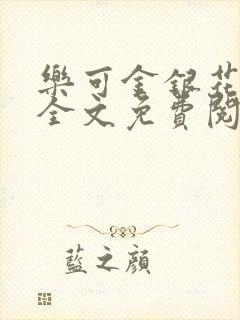 樂可金銀花
全文免費閱
藍之顔